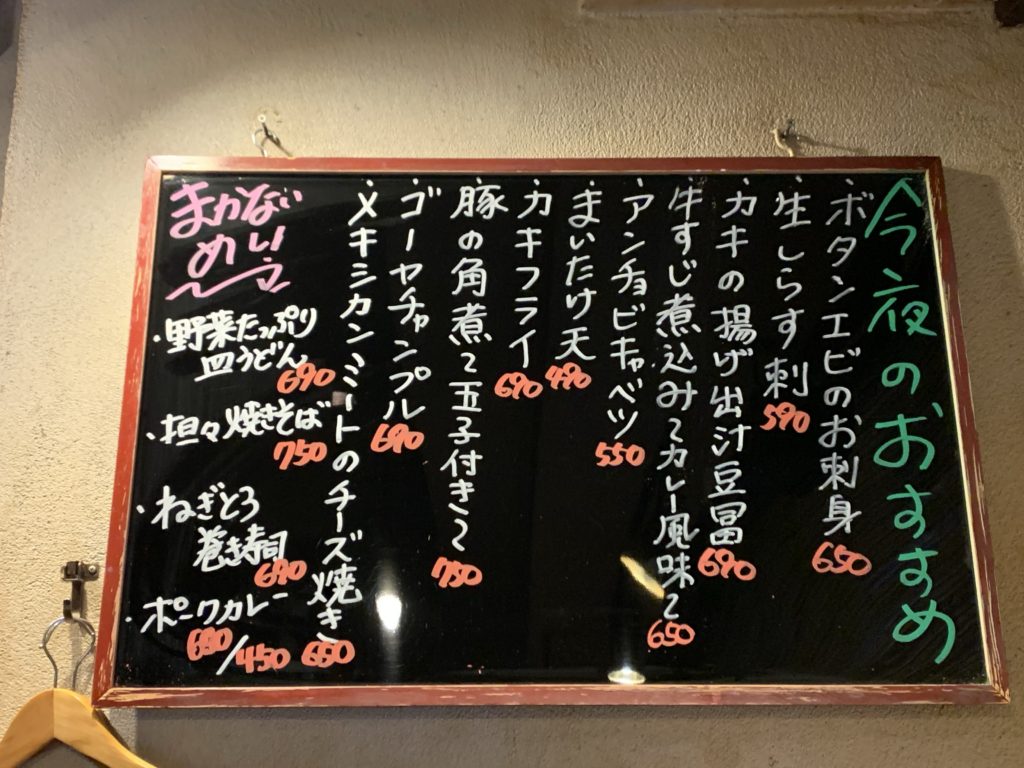 今夜のおすすめ
・ボタンエビのお刺身 650
・生しらす刺 590
・カキの揚げ出汁豆冨 690
・牛すじ煮込み〜カレー風味〜 650
・アンチョビキャベツ 550
・まいたけ天 490
・カキフライ 690
・豚の角煮〜玉子付き〜 750
・ゴーヤチャンプル 690
・メキシカンミートのチーズ焼き 650
まかない
めし
・野菜たっぷり
皿うどん 690
・担々焼きそば 750
・ねぎとろ
巻き寿司 690
・ポークカレー
/450